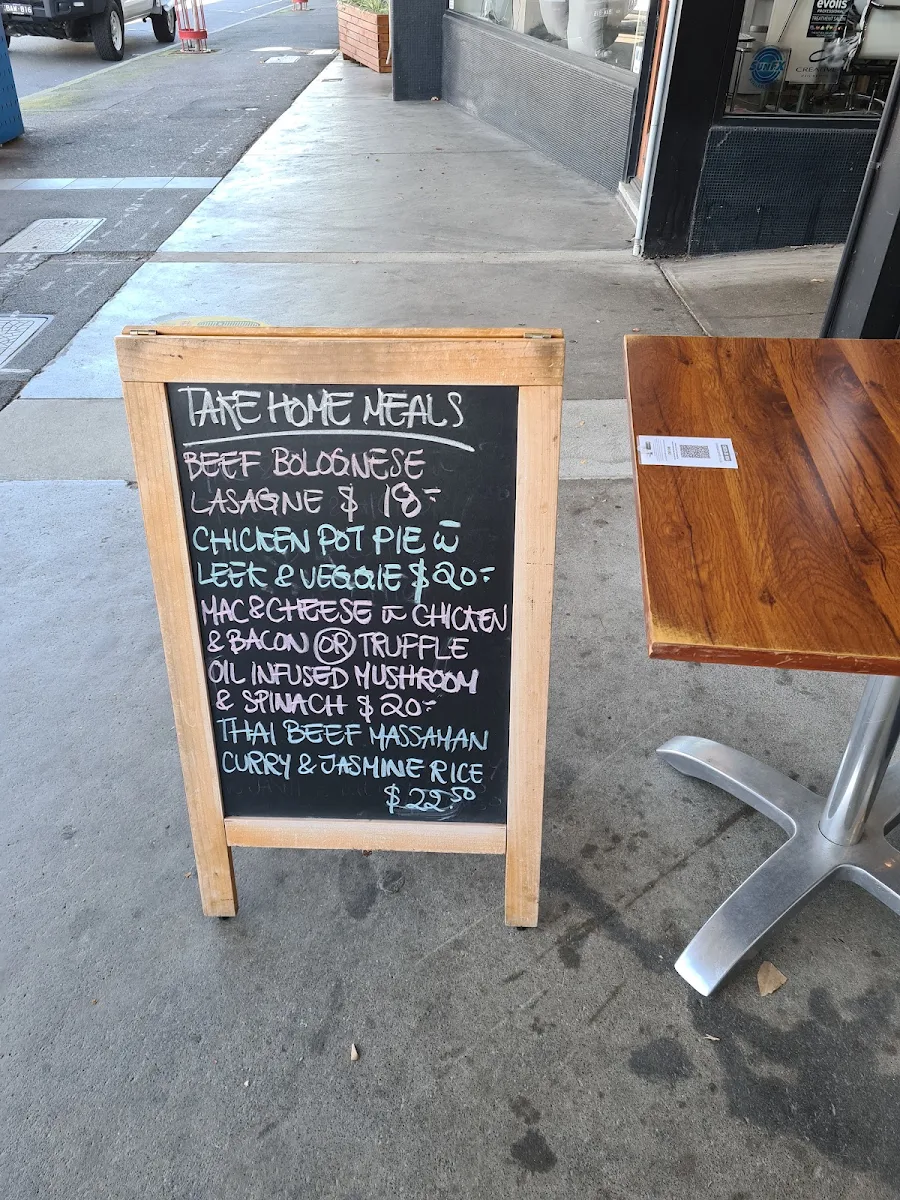 TAKE HOME MEALS
BEEF BOLOGNESE
LASAGNE $ 18-
CHICKEN POT PIE w̅
LEEK & VEGGIE $20.-
MAC&CHEESE w̅ CHICKEN
& BACON OR TRUFFLE
OIL INFUSED MUSHROOM
& SPINACH $20.-
THAI BEEF MASSAMAN
CURRY & JASMINE RICE
$22.50
evolis
PROFESSIONAL